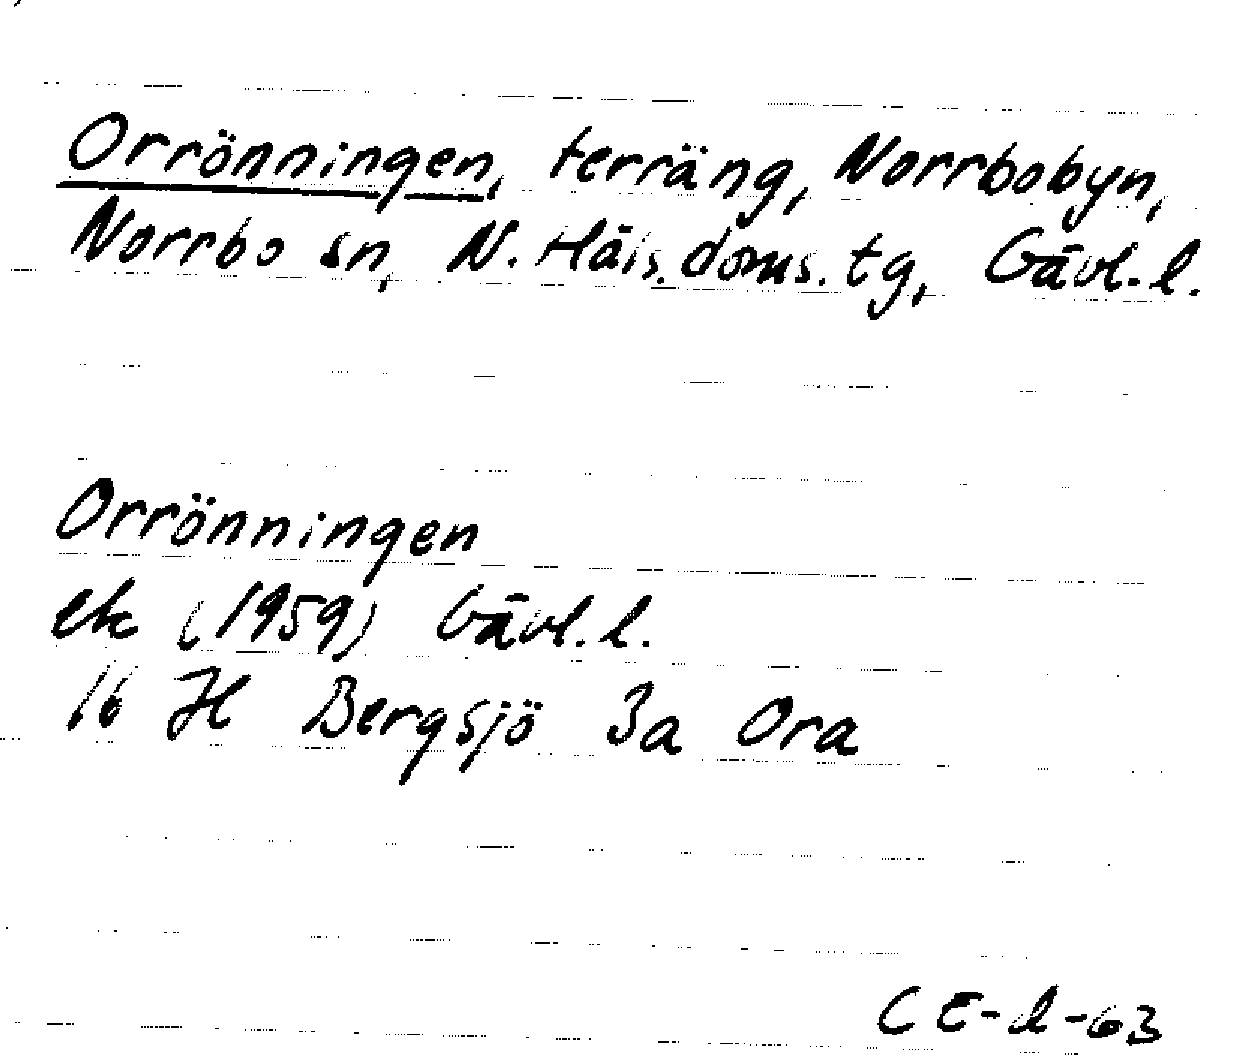 Orrönningen, terräng, Norrbobyn,
Norrbo sn, N. Häls. doms. tg, Gävl. l.
Orrönningen
ek (1959) Gävl. l.
16 H Bergsjö 3a Ora
CE-d-63